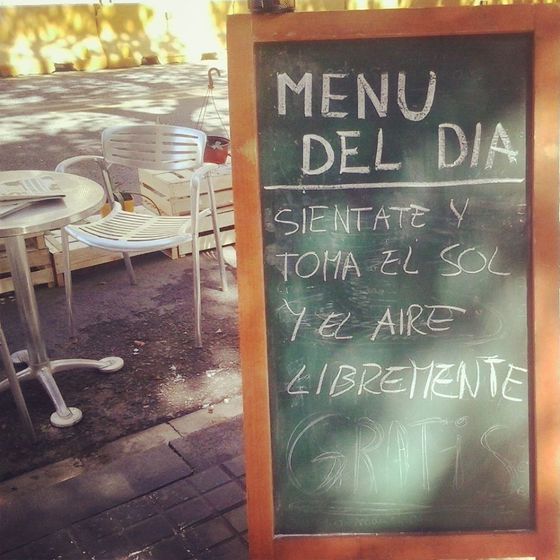 MENU
DEL DIA
SIENTATE Y
TOMA EL SOL
Y EL AIRE
LIBREMENTE
GRATIS